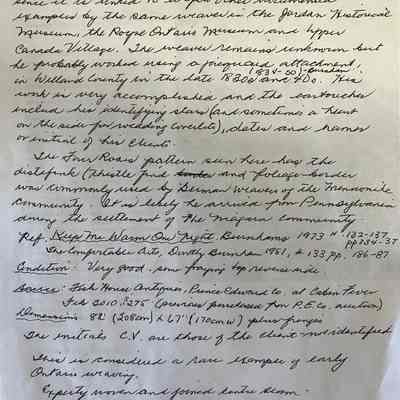 since it is linked to
examples by the same weaver in the Jordan Historical
Museum, the Royal Ontario Museum and Upper
Canada Village. The weaver remains unknown but
he probably worked using a jacquard attachment,
in Welland County in the late 1830s and 40s. (1834-50)-Burnham, His
work is very accomplished and the cartouches
include his identifying stars (and sometimes a heart
on the side for wedding coverlets), dates and names
or initial of his client.
The Four Roses pattern seen here has the
distelfink (thistle finch and foliage border
was commonly used by German weavers of the Mennonite
community. It is likely he arrived from Pennsylvania
during the settlement of the Niagara community.
Ref. Keep Me Warm One Night. Burnhams 1973 # 132-137 pp 334-37
The Comfortable Arts, Dorothy Burnham 1981, # 133 pp. 186-87
Condition: Very good. some fraying top reverse side
Source: Fish House Antiques, Prince Edward Co. at Cabin Fever
Feb 2010. $275 (previous purchased from P.E. Co. auction)
Dimensions: 82" (208cm) x 67" (170cm w) plus fringes
The initials C.V. are those of the client - not identified
This is considered a rare example of early
Ontario weaving.
Expertly woven and joined centre seam.